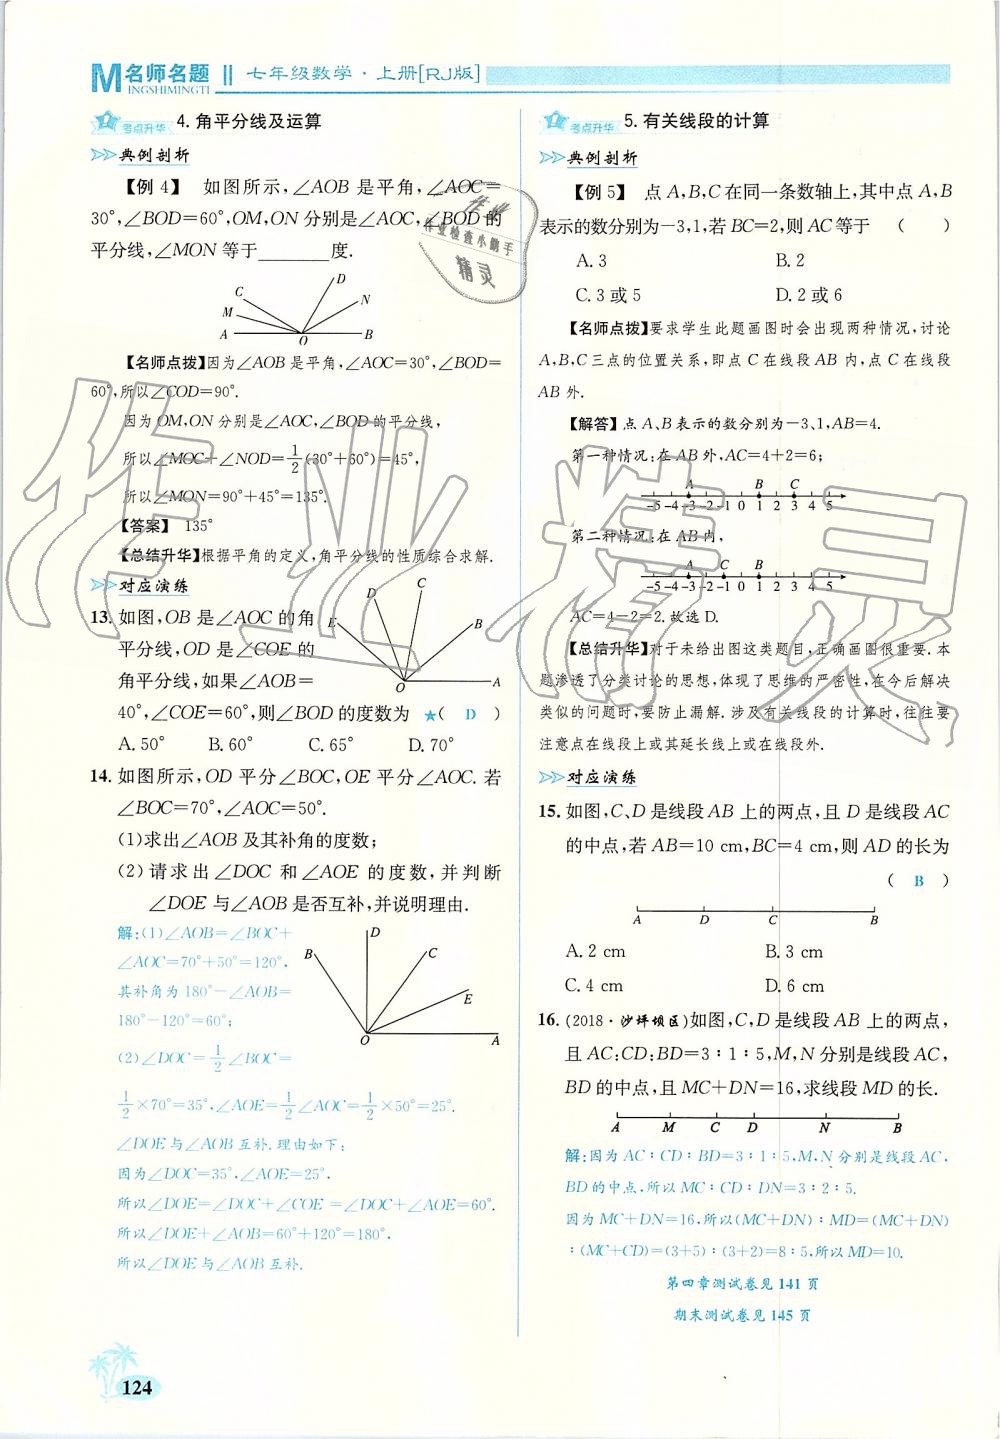 M名师名题 ‖ 七年级数学·上册[RJ版]
INGSHIMINGTI
考点升华 4. 角平分线及运算
典例剖析
【例 4】 如图所示,∠AOB 是平角,∠AOC=
30°,∠BOD=60°,OM,ON 分别是∠AOC,∠BOD 的
平分线,∠MON 等于________度.
C D M N A O B
【名师点拨】因为∠AOB 是平角,∠AOC=30°,∠BOD=
60°,所以∠COD=90°.
因为 OM,ON 分别是∠AOC,∠BOD 的平分线,
所以∠MOC+∠NOD=1/2(30°+60°)=45°,
所以∠MON=90°+45°=135°.
【答案】 135°
【总结升华】根据平角的定义,角平分线的性质综合求解.
对应演练
13. 如图,OB 是∠AOC 的角
平分线,OD 是∠COE 的
角平分线,如果∠AOB=
40°,∠COE=60°,则∠BOD 的度数为 ★( D )
E D C B O A
A. 50° B. 60° C. 65° D. 70°
14. 如图所示,OD 平分∠BOC,OE 平分∠AOC. 若
∠BOC=70°,∠AOC=50°.
(1)求出∠AOB 及其补角的度数;
(2)请求出∠DOC 和∠AOE 的度数,并判断
∠DOE 与∠AOB 是否互补,并说明理由.
解:(1)∠AOB=∠BOC+
∠AOC=70°+50°=120°.
其补角为 180°-∠AOB=
180°-120°=60°;
(2)∠DOC=1/2∠BOC=
B D C E O A
1/2×70°=35°,∠AOE=1/2∠AOC=1/2×50°=25°.
∠DOE与∠AOB互补.理由如下:
因为∠DOC=35°,∠AOE=25°.
所以∠DOE=∠DOC+∠COE=∠DOC+∠AOE=60°.
所以∠DOE+∠AOB=60°+120°=180°.
所以∠DOE与∠AOB互补.
124
考点升华 5. 有关线段的计算
典例剖析
【例 5】 点 A,B,C 在同一条数轴上,其中点 A,B
表示的数分别为-3,1,若 BC=2,则 AC 等于 ( )
A. 3 B. 2
C. 3 或 5 D. 2 或 6
【名师点拨】要求学生此题画图时会出现两种情况,讨论
A,B,C 三点的位置关系,即点 C 在线段 AB 内,点 C 在线段
AB 外.
【解答】点 A、B 表示的数分别为-3、1,AB=4.
第一种情况:在 AB 外,AC=4+2=6;
A B C
-5 -4 -3 -2 -1 0 1 2 3 4 5
第二种情况:在 AB 内,
A C B
-5 -4 -3 -2 -1 0 1 2 3 4 5
AC=4-2=2. 故选 D.
【总结升华】对于未给出图这类题目,正确画图很重要. 本
题渗透了分类讨论的思想,体现了思维的严密性,在今后解决
类似的问题时,要防止漏解. 涉及有关线段的计算时,往往要
注意点在线段上或其延长线上或在线段外.
对应演练
15. 如图,C、D 是线段 AB 上的两点,且 D 是线段 AC
的中点,若 AB=10 cm,BC=4 cm,则 AD 的长为
( B )
A D C B
A. 2 cm B. 3 cm
C. 4 cm D. 6 cm
16. (2018·沙坪坝区)如图,C,D 是线段 AB 上的两点,
且 AC:CD:BD=3:1:5,M,N 分别是线段 AC,
BD 的中点,且 MC+DN=16,求线段 MD 的长.
A M C D N B
解:因为 AC:CD:BD=3:1:5,M,N分别是线段 AC,
BD的中点,所以 MC:CD:DN=3:2:5.
因为 MC+DN=16,所以(MC+DN):MD=(MC+DN)
:(MC+CD)=(3+5):(3+2)=8:5,所以 MD=10.
第四章测试卷见 141 页
期末测试卷见 145 页
作业
作业检查小助手
精灵
作业精灵